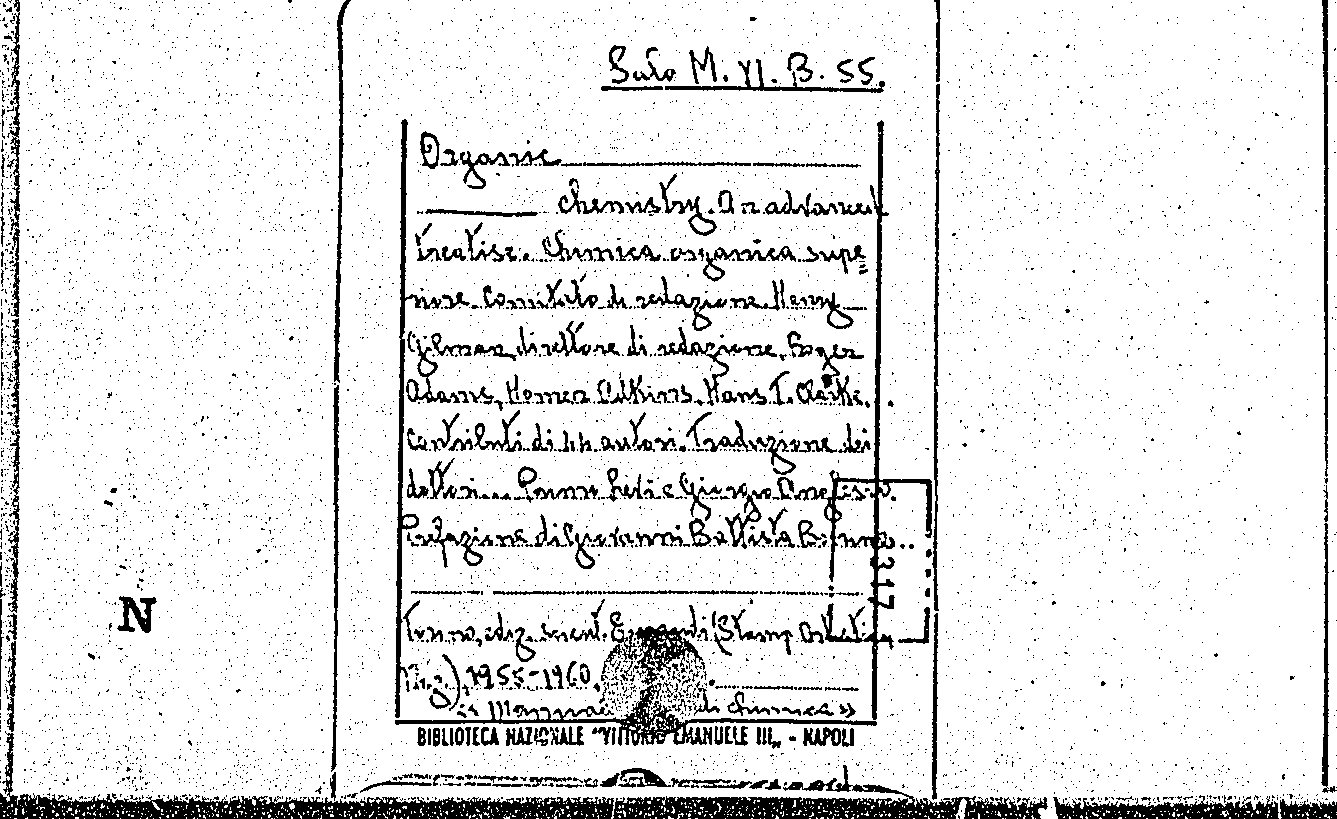 Sala M. VI. B. 55.
Organic
chemistry. An advanced
treatise. Chimica organica supe=
riore. Comitato di redazione. Henry
Gilman, direttore di redazione, Roger
Adams, Homer Adkins, Hans T. Clarke.
Contributi di 44 autori. Traduzione dei
dottori... e Giorgio
Prefazione di Giovanni Battista
317
N
Torino, ediz. scient. Einaudi (Stamp.
1955-1960.
di chimica »
BIBLIOTECA NAZIONALE "VITTORIO EMANUELE III„ - NAPOLI